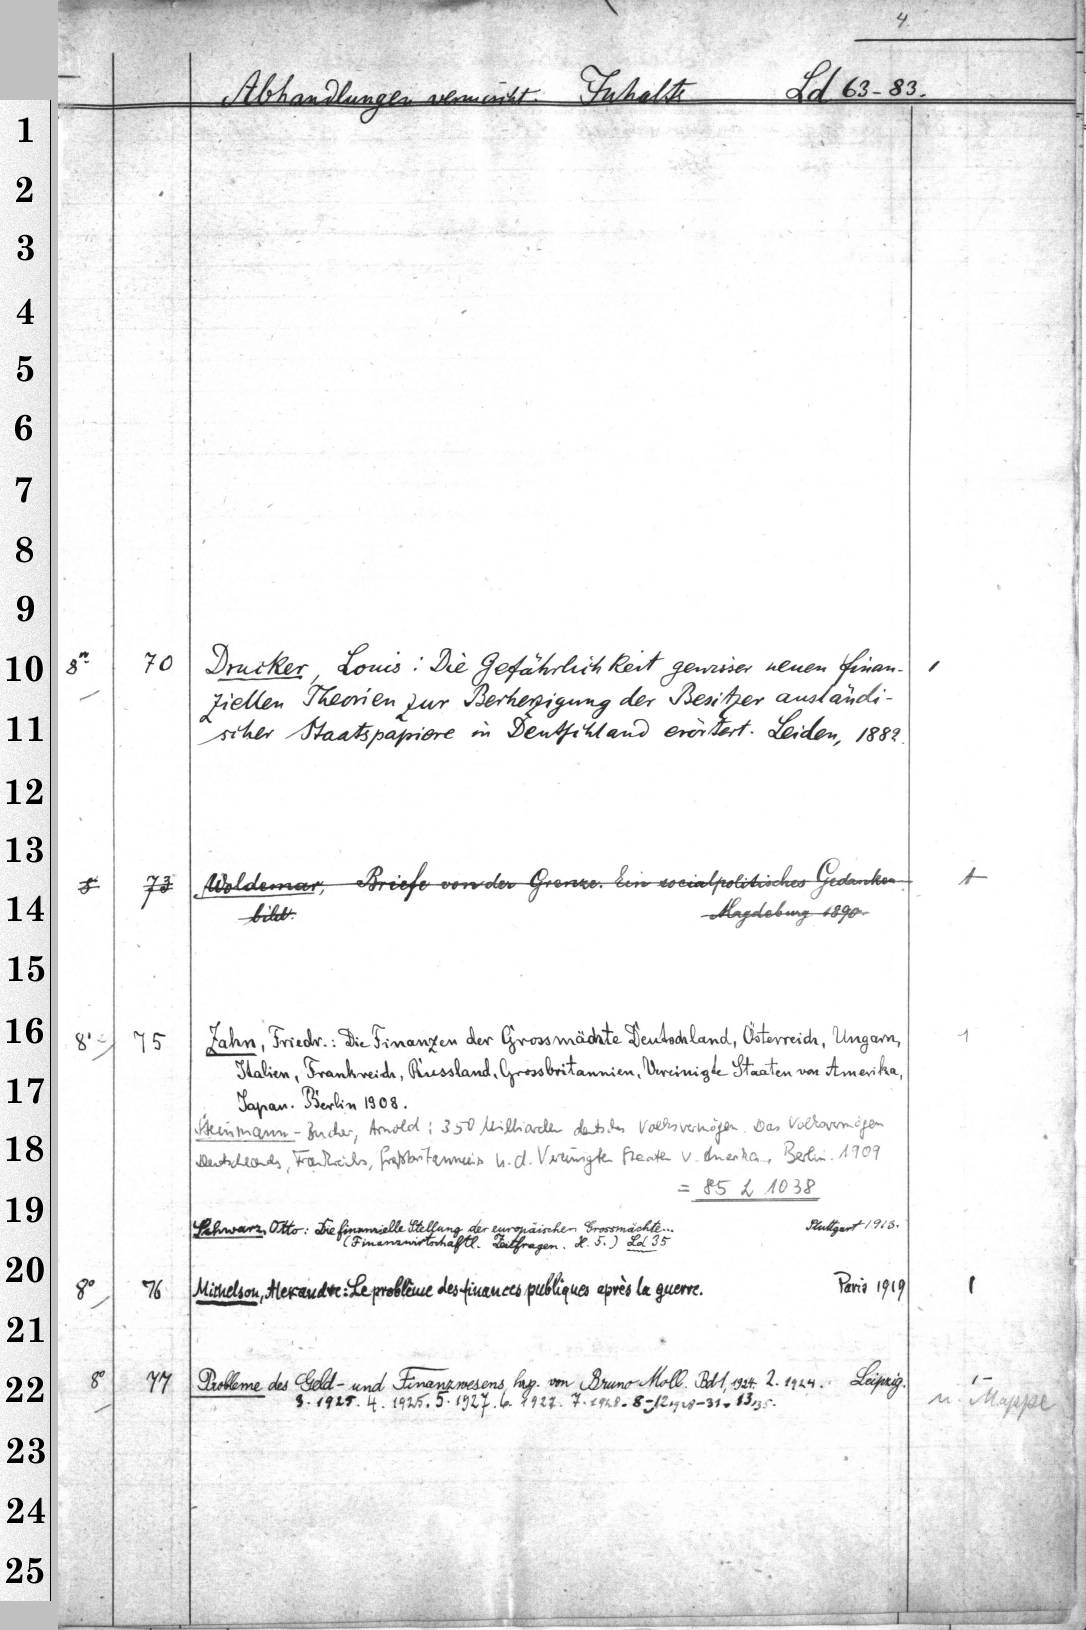 4.
Abhandlungen vermischt. Inhalts Ld 63-83.
1
2
3
4
5
6
7
8
9
10 8° 70 Drucker, Louis: Die Gefährlichkeit gewisser neuen finan- 1
ziellen Theorien zur Berherzigung der Besitzer ausländi-
11 scher Staatspapiere in Deutschland erörtert. Leiden, 1882.
12
13
8 73 Woldemar, Briefe von der Grenze. Ein socialpolitisches Gedanken 1
14 bild. Magdeburg 1890
15
16 8° 75 Zahn, Friedr.: Die Finanzen der Grossmächte Deutschland, Österreich, Ungarn, 1
Italien, Frankreich, Russland, Grossbritannien, Vereinigte Staaten von Amerika,
17 Japan. Berlin 1908.
Steinmann-Bucher, Arnold: 350 Milliarden deutsches Volksvermögen. Das Volksvermögen
18 Deutschlands, Frankreichs, Großbritanniens u. d. Vereinigten Staaten v. Amerika, Berlin. 1909
= 85 L 1038
19 Schwarz, Otto: Die finanzielle Stellung der europäischen Grossmächte... Stuttgart 1913.
(Finanzwirtschaftl. Zeitfragen. H. 5.) Ld 35
20 8° 76 Michelson, Alexandre: Le problème des finances publiques après la guerre. Paris 1919 1
21
22 8° 77 Probleme des Geld- und Finanzwesens, hrg. von Bruno Moll. Bd 1, 1924. 2. 1924. Leipzig. 1-
3. 1925. 4. 1925. 5. 1927. 6. 1927. 7. 1928. 8-12 1928-31. 13 u. Mappe
23
24
25